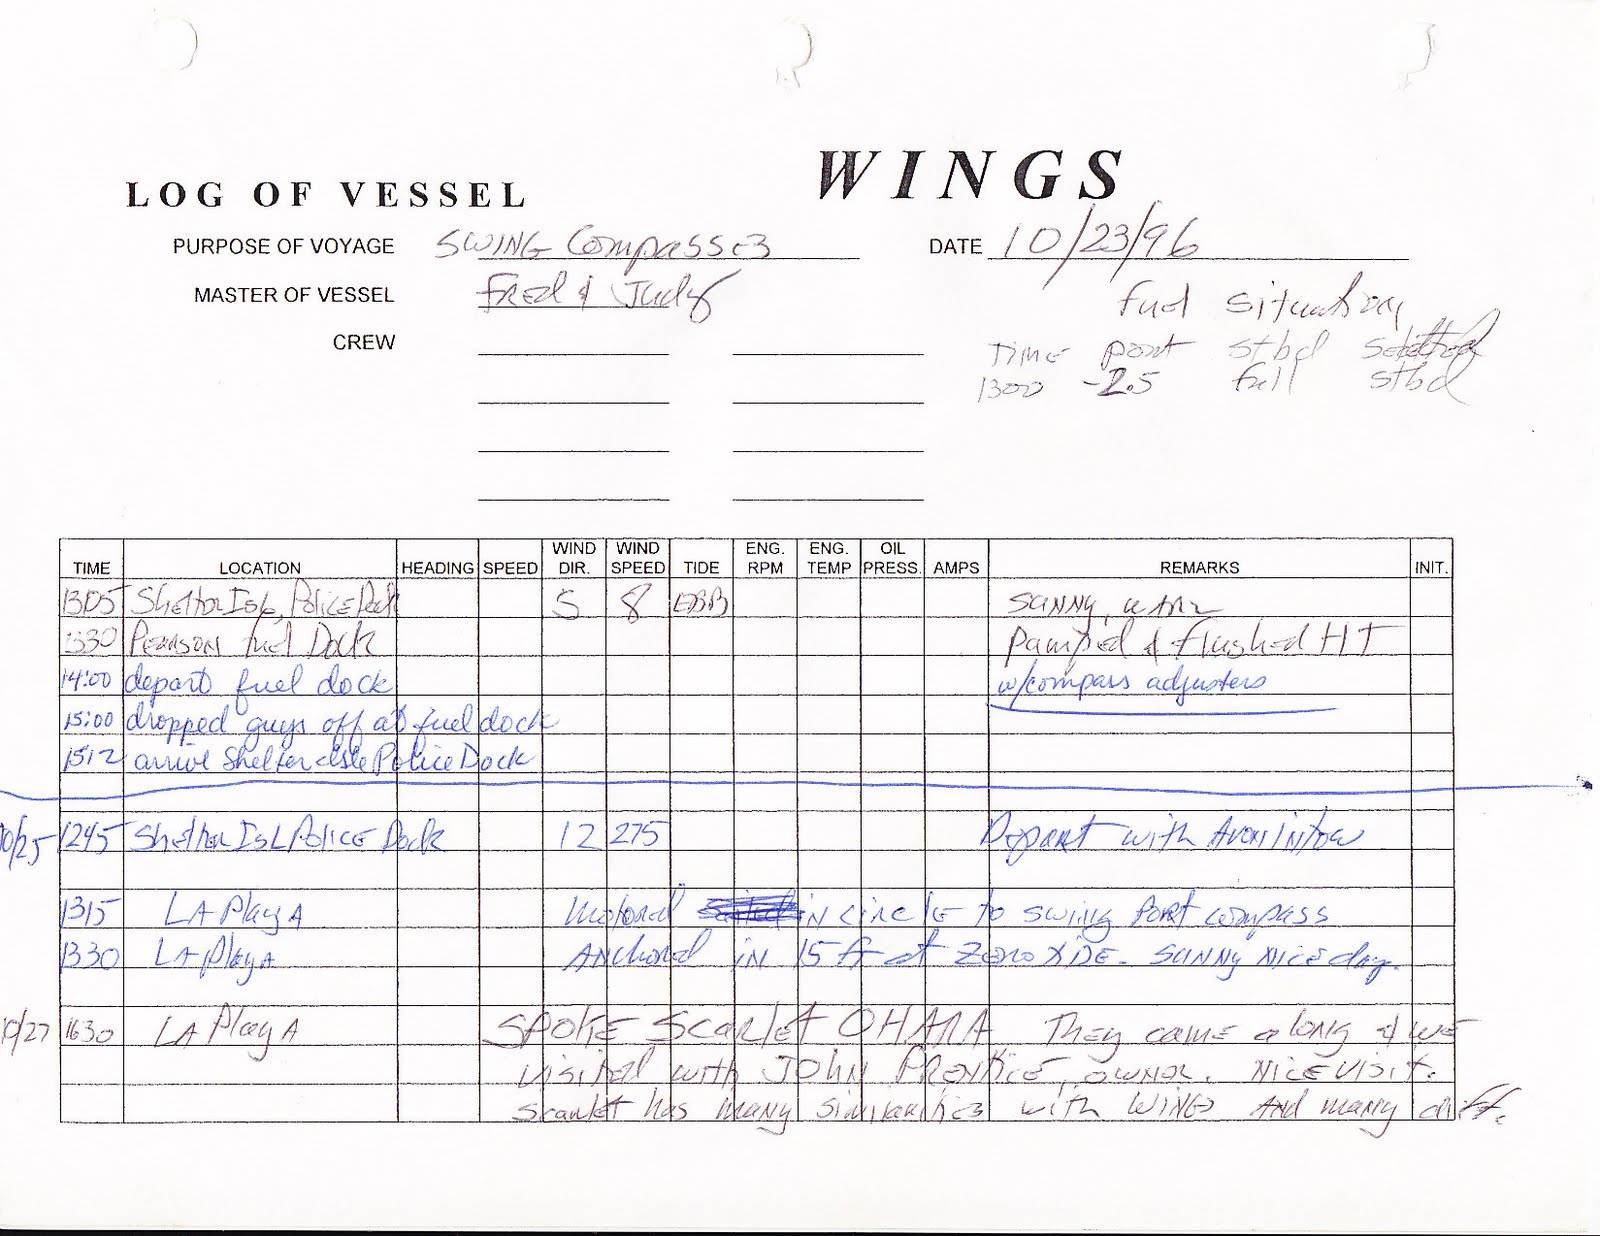 WINGS
LOG OF VESSEL
PURPOSE OF VOYAGE SWING Compasses DATE 10/23/96
MASTER OF VESSEL Fred & Judy Fuel situation
CREW Time port stbd selected
1300 -2.5 full stbd
TIME LOCATION HEADING SPEED WIND DIR. WIND SPEED TIDE ENG. RPM ENG. TEMP OIL PRESS. AMPS REMARKS INIT.
1305 Shelter Isl, Police Dock S 8 EBB Sunny, warm
1330 Pearson Fuel Dock Pumped & Flushed HT
14:00 depart fuel dock w/compass adjusters
15:00 dropped guys off at fuel dock
1512 arrive Shelter Isle Police Dock
10/25 1245 Shelter Isl Police Dock 12 275 Depart with Avon in tow
1315 LA Playa Motored in circle to swing Port compass
1330 LA Playa Anchored in 15 ft at Zero tide. Sunny nice day.
10/27 1630 LA Playa Spoke Scarlet OHARA They came along & we
visited with JOHN PRENTICE, owner. Nice visit.
Scarlet has many similarities with WINGS And many diff.